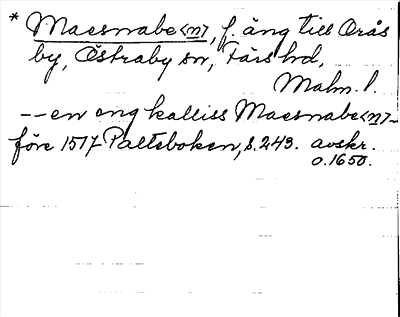 * Maesnabe<n>, f. äng till Orås
by, Östraby sn, Färs hd,
Malm. l.
-- en eng kalliss Maesnabe<n> --
före 1517 Palteboken, s. 243. avskr.
o. 1650.